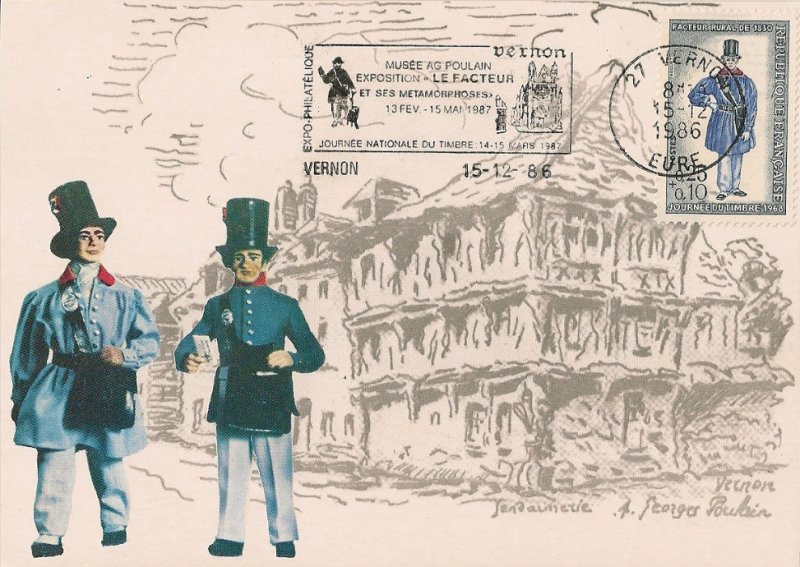 EXPO-PHILATÉLIQUE
vernon
MUSÉE AG POULAIN
EXPOSITION « LE FACTEUR
ET SES METAMORPHOSES»
13 FEV. - 15 MAI 1987
JOURNÉE NATIONALE DU TIMBRE : 14-15 MARS 1987
VERNON
15-12-86
FACTEUR RURAL DE 1830
RÉPUBLIQUE FRANÇAISE
POSTES
0,25
+0,10
JOURNÉE DU TIMBRE 1968
27 VERNON
8H
15-12
1986
EURE
Vernon
Gendarmerie A. Georges Poulain